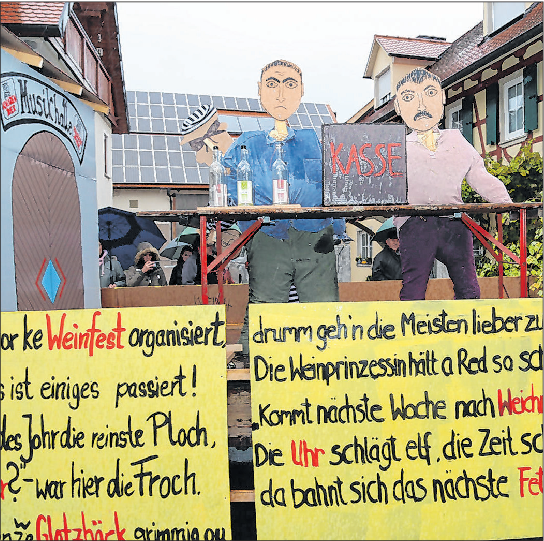 Musikhalle
KASSE
or ke Weinfest organisiert,
s ist einiges passiert!
des Johr die reinste Ploch,
r?"- war hier die Froch.
nze Glotzböck grimmig
drumm geh'n die Meisten lieber zu
Die Weinprinzessin hält a Red so sc
„Kommt nächste Woche nach Weich
Die Uhr schlägt elf, die Zeit sc
da bahnt sich das nächste Fet